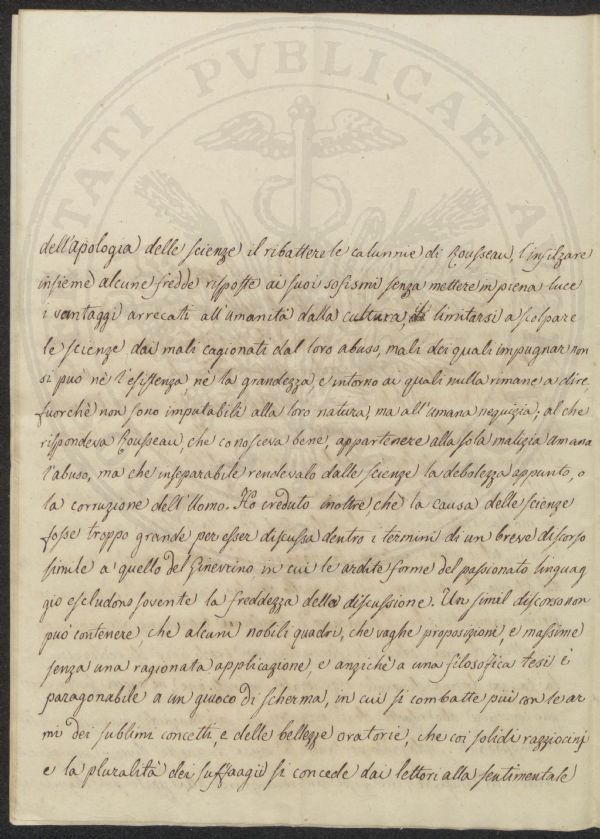 TATI PVBLICAE A
dell'apologia delle scienze il ribattere le calunnie di Rousseau, l'infilzare
insieme alcune fredde risposte ai suoi sofismi senza mettere in piena luce
i vantaggi arrecati all'umanità dalla cultura, limitarsi a scolpare
le scienze dai mali cagionati dal loro abuso, mali dei quali impugnar non
si può nè l'esistenza, nè la grandezza e intorno ai quali nulla rimane a dire
fuorchè non sono imputabili alla loro natura, ma all'umana nequizia; al che
rispondeva Rousseau, che conosceva bene, appartenere alla sola malizia umana
l'abuso, ma che inseparabile rendevalo dalle scienze la debolezza appunto, o
la corruzione dell'Uomo. Ho creduto inoltre, che la causa delle scienze
fosse troppo grande per esser discussa dentro i termini di un breve discorso
simile a quello del Ginevrino, in cui le ardite forme del passionato linguag
gio escludono sovente la freddezza della discussione. Un simil discorso non
può contenere, che alcuni nobili quadri, che vaghe proposizioni, e massime
senza una ragionata applicazione, e anzichè a una filosofica tesi è
paragonabile a un giuoco di scherma, in cui si combatte più con le ar
mi dei sublimi concetti, e delle bellezze oratorie, che coi solidi razziocinj
e la pluralità dei suffragii si concede dai lettori alla sentimentale